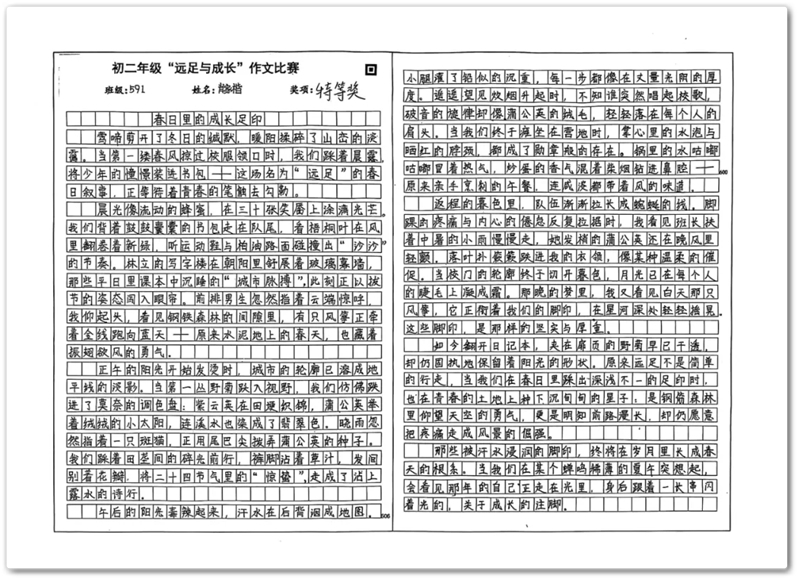 初二年级“远足与成长”作文比赛
班级:591 姓名: 奖项:特等奖
春日里的成长足印
莺啼剪开了冬日的缄默，暖阳揉碎了山峦的淡
霭。当第一缕春风掠过校服领口时，我们踩着晨露，
将少年的憧憬装进书包——这场名为“远足”的春
日叙事，正等待着青春的笔触去勾勒。
晨光像流动的蜂蜜，在三十张笑靥上涂满光芒。
我们背着鼓鼓囊囊的书包走在队尾，看梧桐叶在风
里翻卷着新绿，听运动鞋与柏油路面碰撞出“沙沙”
的节奏。林立的写字楼在朝阳里舒展着玻璃幕墙，
那些平日里课本中沉睡的“城市脉搏”，此刻正以拔
节的姿态闯入眼帘。前排男生忽然指着云端惊呼，
我仰起头，看见钢铁森林的间隙里，有只风筝正牵
着金线跑向蓝天——原来水泥地上的春天，也藏着
振翅欲飞的勇气。
正午的阳光开始发烫时，城市的轮廓已溶成地
平线的淡影。当第一丛野菊跃入视野，我们仿佛跌
进了莫奈的调色盘：紫云英在田埂织锦，蒲公英举
着绒绒的小太阳，连溪水也染成了翡翠色。晓雨忽
然指着一只斑猫，正用尾巴尖拨弄蒲公英的种子。
我们踩着田垄间的碎光前行，裤脚沾着草汁，发间
别着花瓣，将二十四节气里的“惊蛰”走成了沾上
露水的诗行。
午后的阳光毒辣起来，汗水在后背洇成地图。
500
小腿灌了铅似的沉重，每一步都像在丈量光阴的厚
度。遥遥望见炊烟升起时，不知谁突然唱起校歌，
破音的旋律却像蒲公英的绒毛，轻轻落在每个人的
肩头。当我们终于瘫坐在营地时，掌心里的水泡与
晒红的脖颈，都成了勋章般的存在。锅里的水咕嘟
咕嘟冒着热气，炒蛋的香气混着柴烟钻进鼻腔——
600
原来亲手烹制的午餐，连咸淡都带着风的味道。
返程的暮色里，队伍渐渐拉长成蜿蜒的线。脚
踝的疼痛与内心的倦怠反复拉据时，我看见班长扶
着中暑的小雨慢慢走，她发梢的蒲公英还在晚风里
轻颤。落叶扑簌簌跌进我的衣领，像某种温柔的催
促。当校门的轮廓终于切开暮色，月光已在每个人
的睫毛上凝成霜。那晚的梦里，我又看见白天那只
风筝，它正衔着我们的脚印，在星河深处轻轻摇晃。
这些脚印，是那样的坚实与厚重。
如今翻开日记本，夹在扉页的野菊早已干透，
却仍固执地保留着阳光的形状。原来远足不是简单
的行走，当我们在春日里踩出深浅不一的足印时，
也在青春的土地上种下沉甸甸的里子：是钢筋森林
里仰望天空的勇气，更是明知前路漫长，却仍愿意
把疼痛走成风景的倔强。
那些被汗水浸润的脚印，终将在岁月里长成春
天的根系。当我们在某个蝉鸣稀薄的夏午突想起，
会看见那年的自己正走在光里，身后跟着一长串闪
着光的，关于成长的注脚。